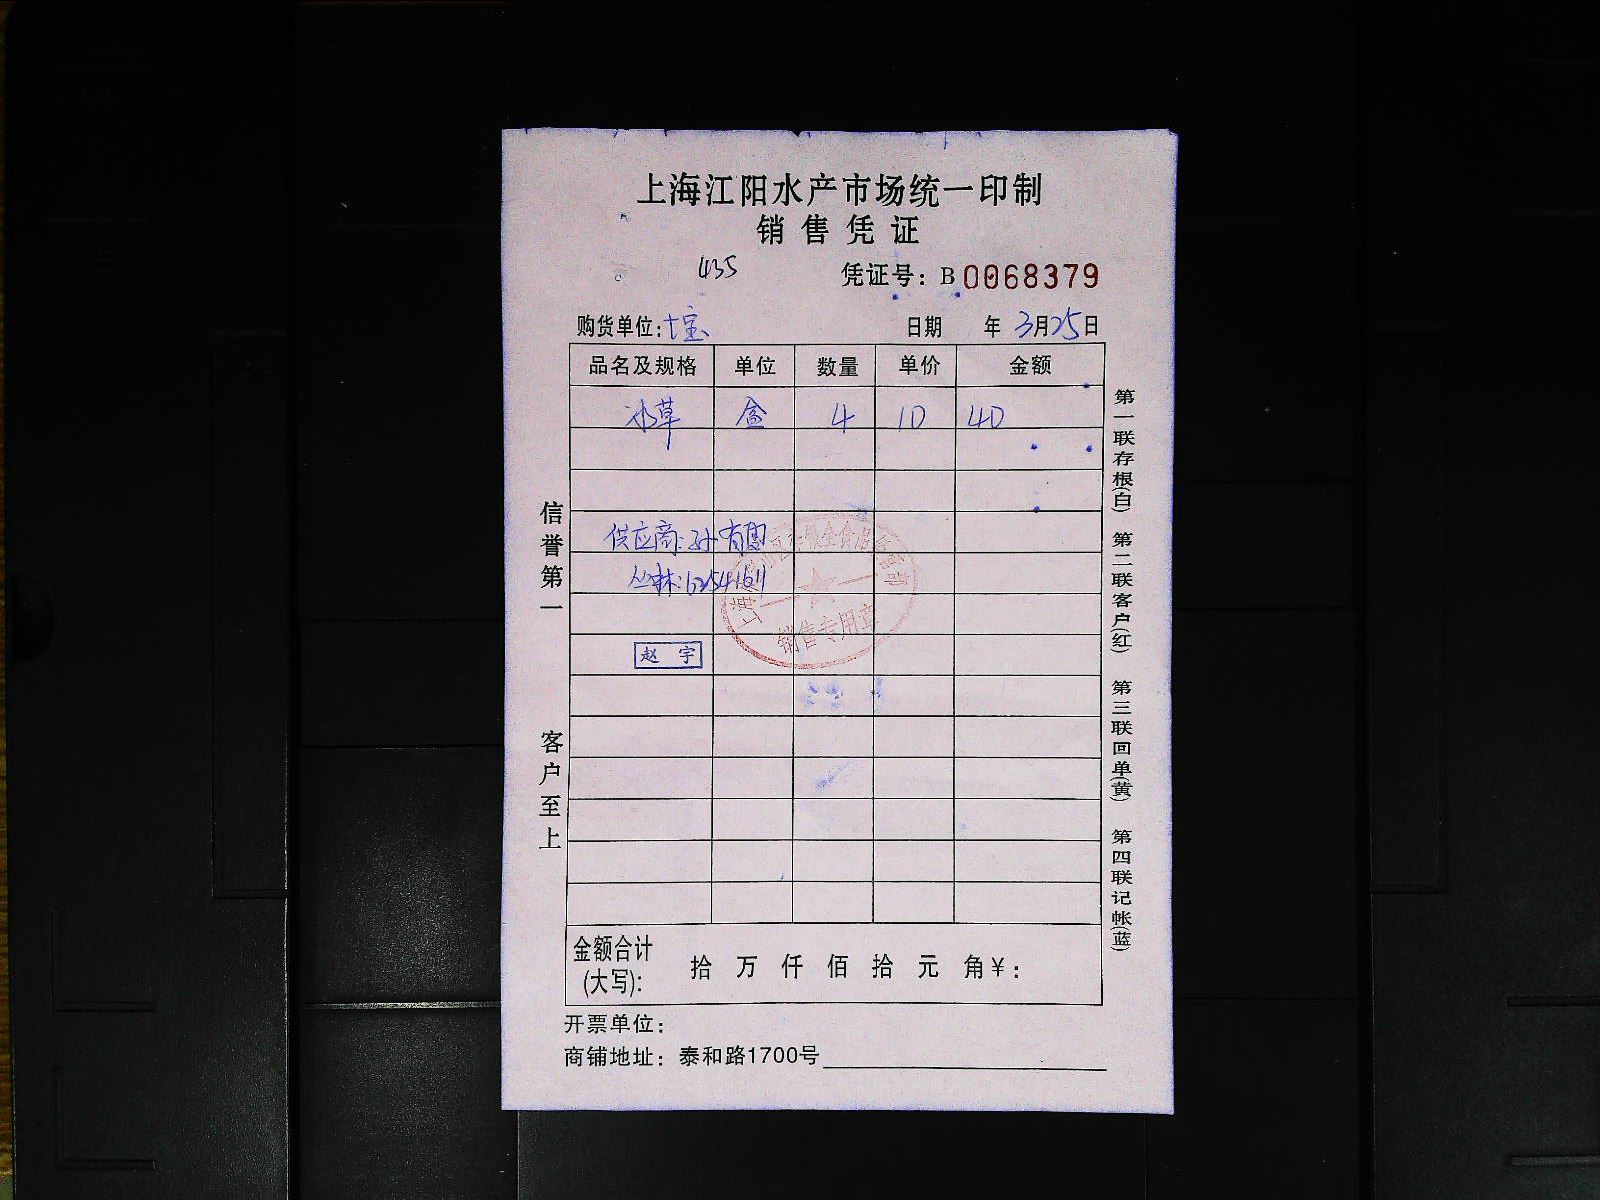 上海江阳水产市场统一印制
销售凭证
435
凭证号：B 0068379
购货单位：十宝 日期 年 3月25日
品名及规格 单位 数量 单价 金额
冰草 盒 4 10 40
供应商：孙有
丛林：
赵宇
销售专用章
信誉第一 客户至上
第一联存根(白) 第二联客户(红) 第三联回单(黄) 第四联记帐(蓝)
金额合计(大写)： 拾 万 仟 佰 拾 元 角 ¥：
开票单位：
商铺地址：泰和路1700号